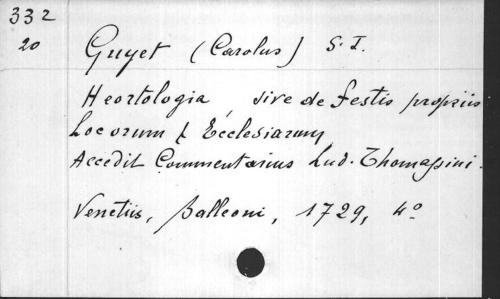 332
20
Guyet (Carolus) S. I.
Heortologia, sive de festis propriis
Locorum & Ecclesiarum
Accedit Commentarius Lud. Thomassini.
Venetiis, Balleoni, 1729, 4º